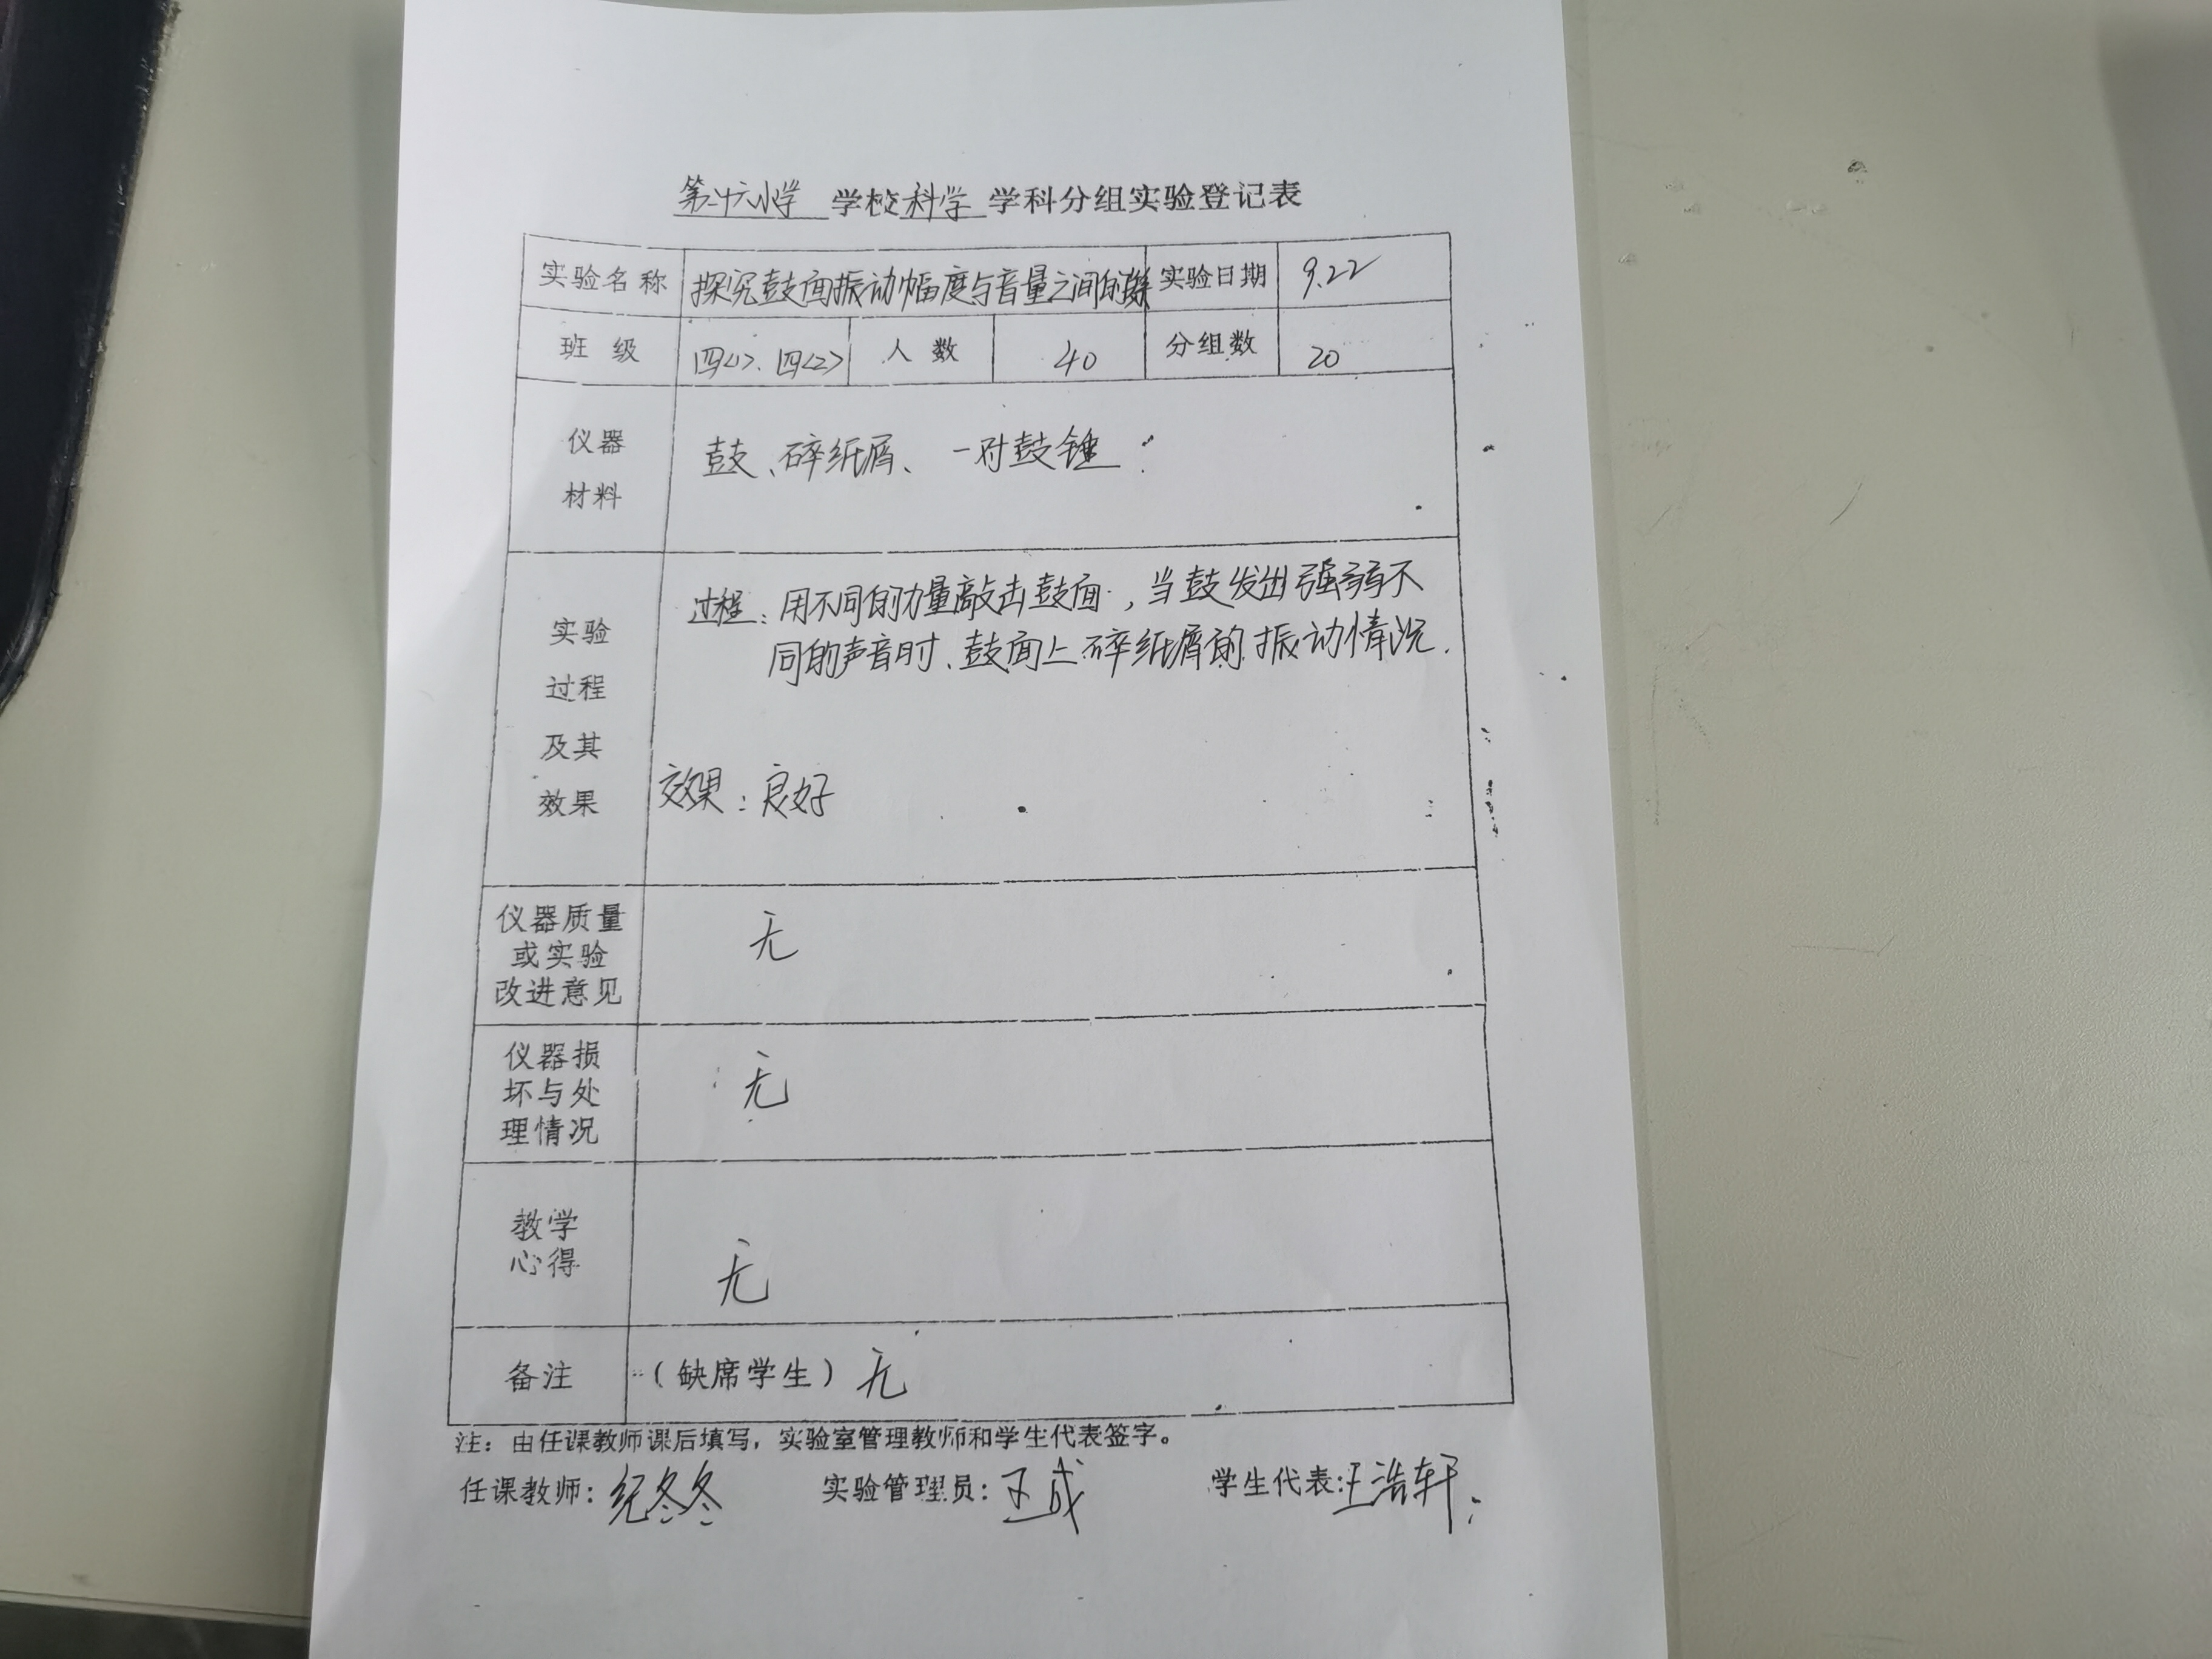 第十六小学 学校 科学 学科分组实验登记表
实验名称 探究鼓面振动幅度与音量之间的联系 实验日期 9.22
班 级 四<1>、四<2> 人 数 40 分组数 20
仪器
材料
鼓、碎纸屑、一对鼓锤
实验
过程
及其
效果
过程：用不同的力量敲击鼓面，当鼓发出强弱不
同的声音时、鼓面上碎纸屑的振动情况.
效果：良好
仪器质量
或实验
改进意见
无
仪器损
坏与处
理情况
无
教学
心得
无
备注 （缺席学生）无
注：由任课教师课后填写，实验室管理教师和学生代表签字。
任课教师：纪冬冬 实验管理员：王成 学生代表：王浩轩